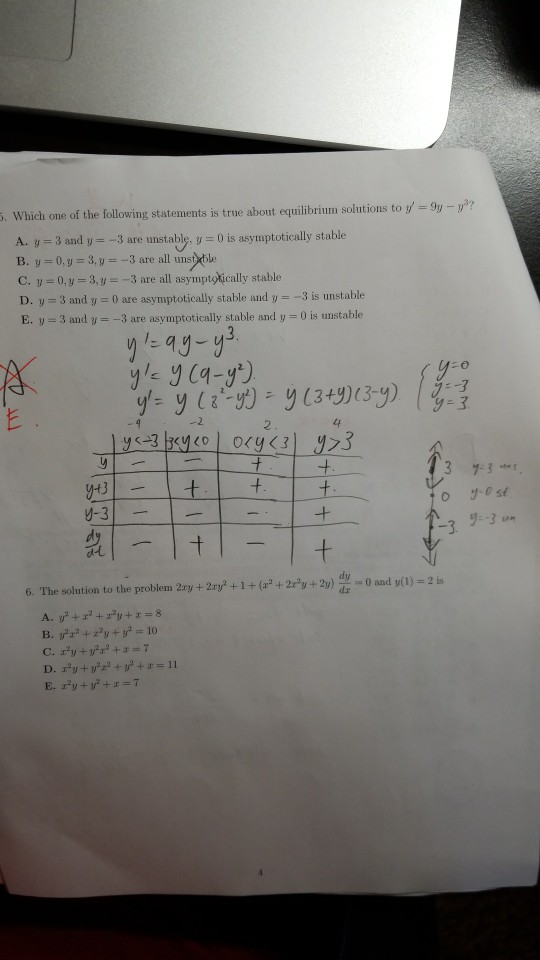 5. Which one of the following statements is true about equilibrium solutions to y' = 9y − y³?
A. y = 3 and y = −3 are unstable, y = 0 is asymptotically stable
B. y = 0, y = 3, y = −3 are all unstable
C. y = 0, y = 3, y = −3 are all asymptotically stable
D. y = 3 and y = 0 are asymptotically stable and y = −3 is unstable
E. y = 3 and y = −3 are asymptotically stable and y = 0 is unstable
y' = 9y − y³.
y' = y (9−y²).
y' = y (3²−y²) = y (3+y)(3−y). { y=0 y=−3 y=3
A
E.
−4 −2 2. 4
y<−3 3<y<0 0<y<3 y>3
y − − + +.
y+3 − +. +. +.
y−3 − − − +
dy/dt − + − +
3 y=3 uns.
0 y=0 st
−3 y=−3 un
6. The solution to the problem 2xy + 2xy² + 1 + (x² + 2x²y + 2y) dy/dx = 0 and y(1) = 2 is
A. y² + x² + x²y + x = 8
B. y²x² + x²y + y² = 10
C. x²y + y²x² + x = 7
D. x²y + y²x² + y² + x = 11
E. x²y + y² + x = 7
4